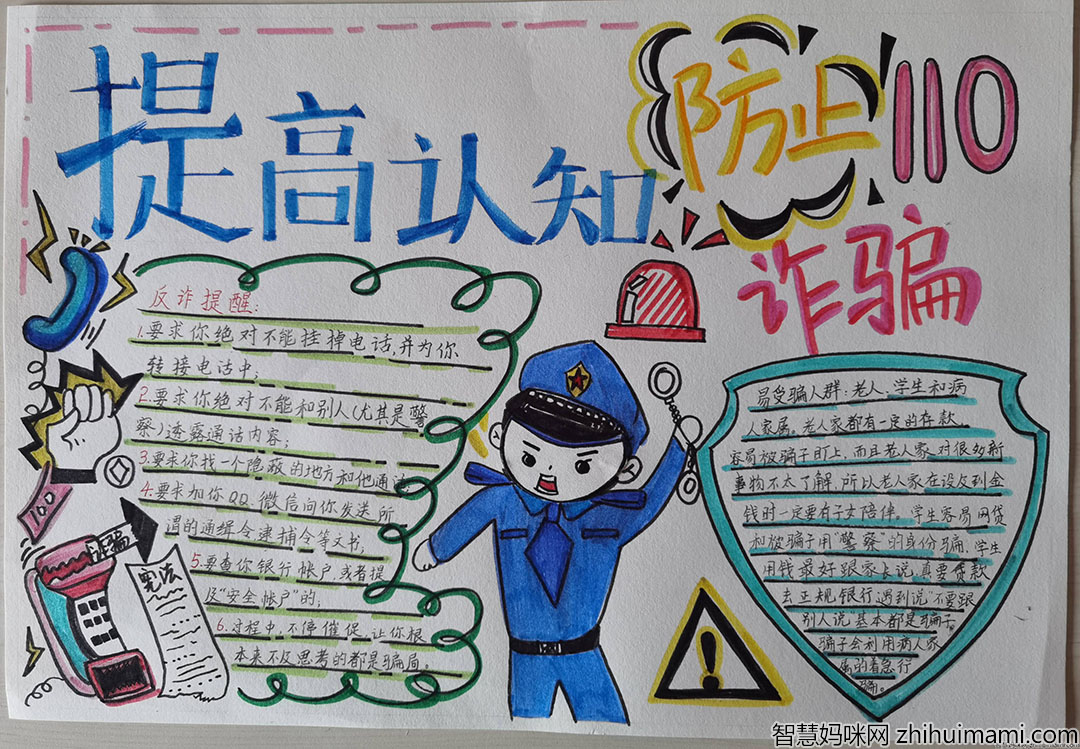 提高认知
防止
110
诈骗
反诈提醒：
1.要求你绝对不能挂掉电话,并为你
转接电话中；
2.要求你绝对不能和别人(尤其是警
察)透露通话内容；
3.要求你找一个隐蔽的地方和他通话
4.要求加你QQ、微信向你发送所
谓的通缉令逮捕令等文书；
5.要查你银行帐户，或者提
及"安全帐户"的；
6.过程中，不停催促，让你根
本来不及思考的都是骗局。
100
诈骗
宪法
易受骗人群：老人、学生和病
人家属。老人家都有一定的存款，
容易被骗子盯上，而且老人家对很多新
事物不太了解，所以老人家在设及到金
钱时一定要有子女陪伴。学生容易网贷
和被骗子用"警察"的身份骗，学生
用钱最好跟家长说，真要贷款
去正规银行遇到说"不要跟
别人说"基本都是骗子。
骗子会利用病人家
属的着急行
骗。
智慧妈咪网 zhihuimami.com